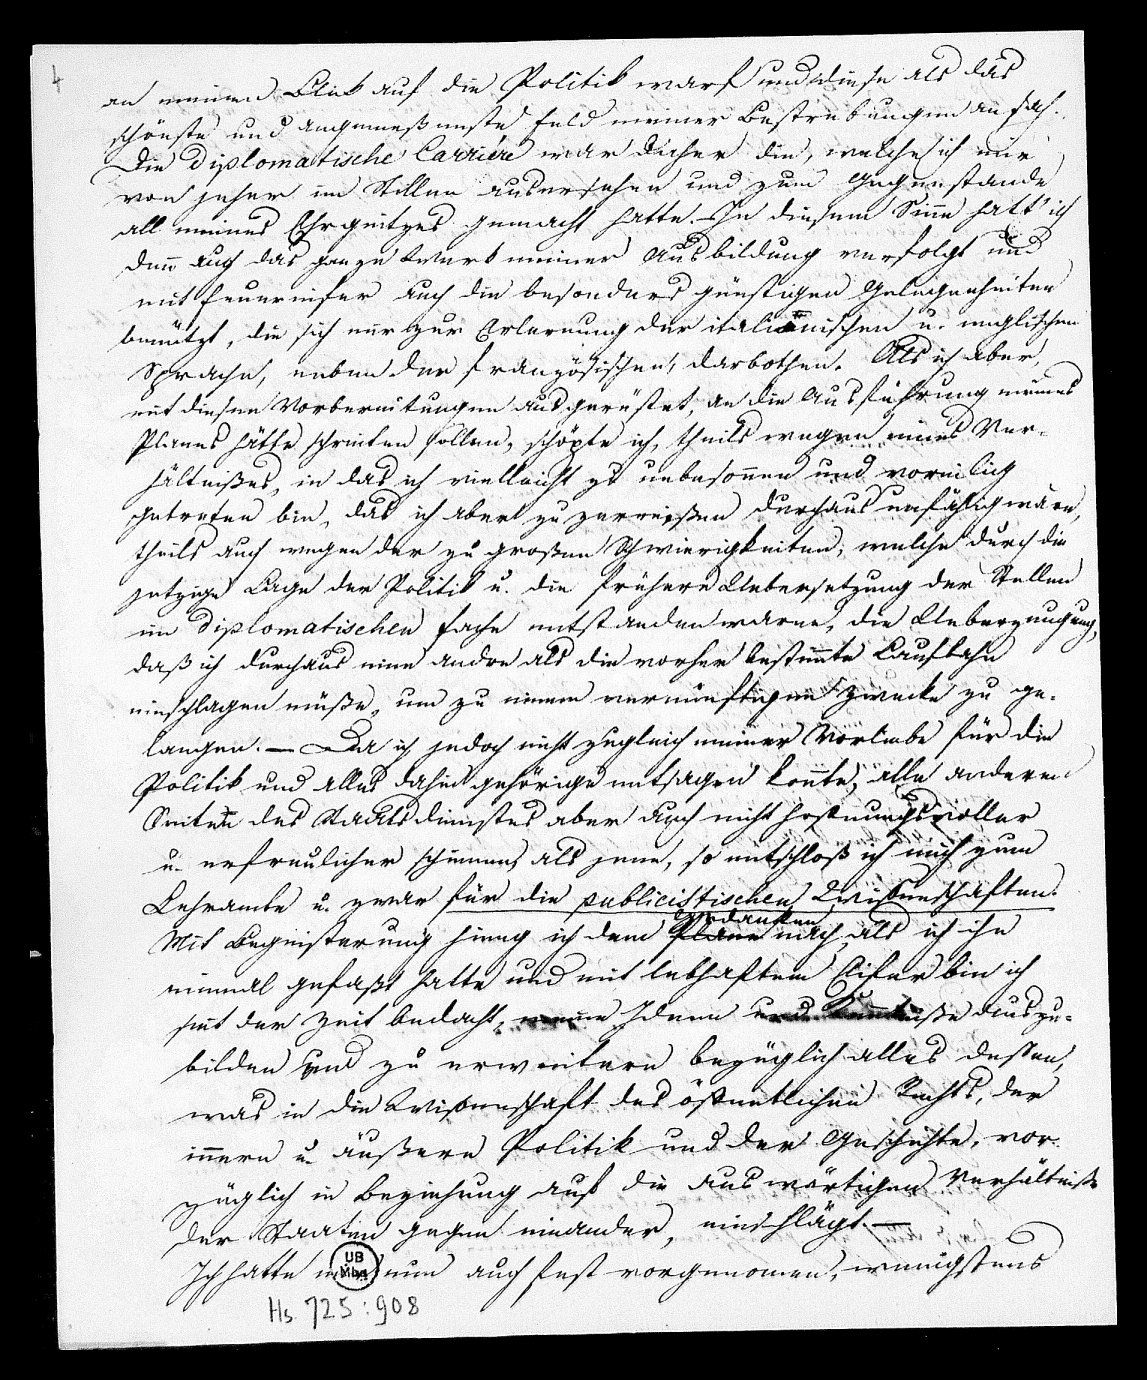 4
an meinen Blick auf die Politik warf und diese als das
schönste und angemeßenste Feld meiner Bestrebungen ansah.
Die diplomatische Carrière war daher die, welche ich mir
von jeher im Stillen ausersehen und zum Gegenstande
all meines Ehrgeitzes gemacht hatte. In diesem Sinne hatt' ich
denn auch das ganze Werk meiner Ausbildung verfolgt und
mit Feuereifer auch die besonders günstigen Gelegenheiten
benützt, die sich mir zur Erlernung der italienischen u. englischen
Sprache, neben der französischen, darbothen. Als ich aber,
mit diesen Vorbereitungen ausgerüstet, an die Ausführung meines
Planes hätte schreiten sollen, schöpfte ich, theils wegen eines Ver-
hältnißes, in das ich vielleicht zu unbesonnen und voreilig
getreten bin, das ich aber zu zerreißen durchaus unfähig wäre,
theils auch wegen der zu großen Schwierigkeiten, welche durch die
jetzige Lage der Politik u. die frühere Uebersetzung der Stellen
im diplomatischen Fache entstanden waren, die Ueberzeugung,
daß ich durchaus eine andre als die vorher bestimmte Laufbahn
einschlagen müße, um zu einem vernünftigen Zwecke zu ge-
langen. — Da ich jedoch nicht zugleich meiner Vorliebe für die
Politik und alles dahin gehörige entsagen konnte, alle anderen
Seiten des Staatsdienstes aber auch nicht hoffnungsvoller
u. erfreulicher schienen, als jene, so entschloß ich mich zum
Lehramte u. zwar für die publicistischen Wißenschaften.
Mit Begeisterung hieng ich dem Plane Gedanken nach, als ich ihn
einmal gefaßt hatte und mit lebhaftem Eifer bin ich
seit der Zeit bedacht, meine Ideen und Kenntniße auszu-
bilden und zu erweitern bezüglich alles dessen,
was in die Wißenschaft des öffentlichen Rechts, der
innern u. äußern Politik und der Geschichte, vor-
züglich in Beziehung auf die auswärtigen Verhältniße
der Staaten gegen einander, einschlägt. —
Ich hatte mir nun auch fest vorgenomen, wenigstens
UB
Mbg
Hs. 725:908